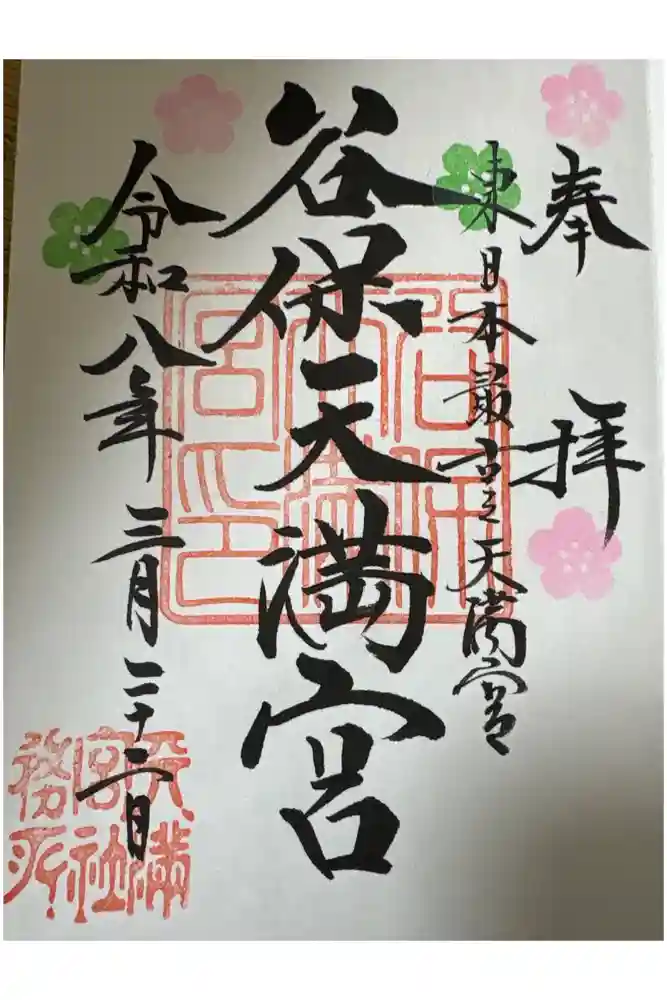 奉拝
東日本最古之天満宮
谷保天満宮
令和八年三月二十二日
谷保天満宮印
天満宮社務所